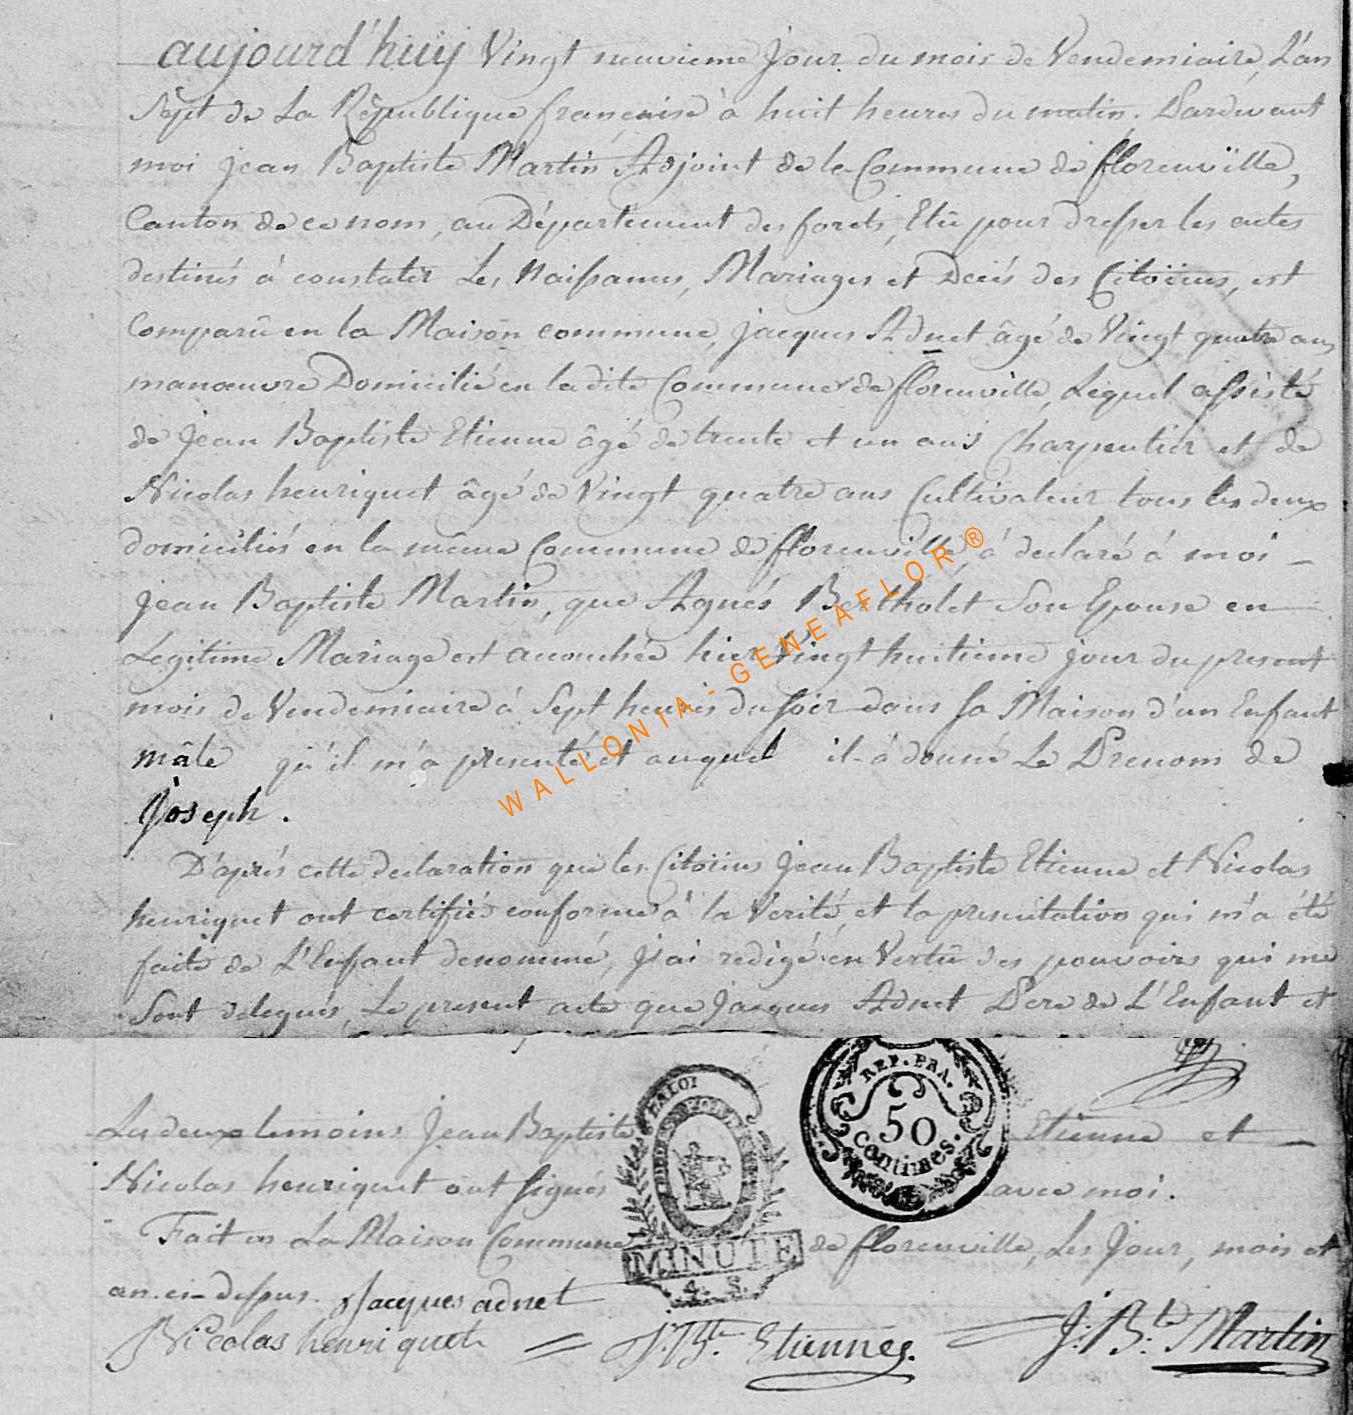 aujourd'huÿ Vingt neuvieme Jour du mois de Vendemiaire, L'an
Sept de La Republique francaise à huit heures du matin. Pardevant
moi Jean Baptiste Martin Adjoint de le Commune de florenville,
Canton de ce nom, au Département des forets, Elû pour dresser les actes
destinés à constater Les Naissances, Mariages et Décés des Citoïens, est
Comparû en la Maison commune, Jacques Adnet âgé de Vingt quatre ans
manœuvre Domicilié en ladite Commune de florenville, Lequel assisté
de Jean Baptiste Etienne âgé de trente et un ans Charpentier et de
Nicolas henriquet âgé de Vingt quatre ans Cultivateur, tous les deux
domiciliés en la même Commune de florenville, à declaré à moi -
Jean Baptiste Martin, que Agnés Bertholet Son Epouse en
Légitime Mariage est accouchée hier Vingt huitieme jour du present
mois de Vendemiaire à Sept heures du soir dans sa Maison d'un Enfant
mâle qu'il m'a presenté et auquel il à donné Le Prenom de
Joseph.
D'après cette declaration que les Citoïens Jean Baptiste Etienne et Nicolas
henriquet ont certifié conforme à la Verité, et la presentation qui m'a été
faite de L'Enfant denommé, j'ai redigé en Vertû des pouvoirs qui me
Sont delegués, Le present acte que Jacques Adnet Pere de L'Enfant et
Les deux temoins Jean Baptiste Etienne et -
Nicolas henriquet ont signés avec moi.
Fait en La Maison Commune de florenville, Les Jour, mois et
an ci-dessus. Jacques adnet
Nicolas henriquet = J. Bte. Etienne. = J: B:te Martin
REP. FRA.
50
centimes.
LA LOI
MINUTE
4. S.
WALLONIA - GENEAFLOR ®